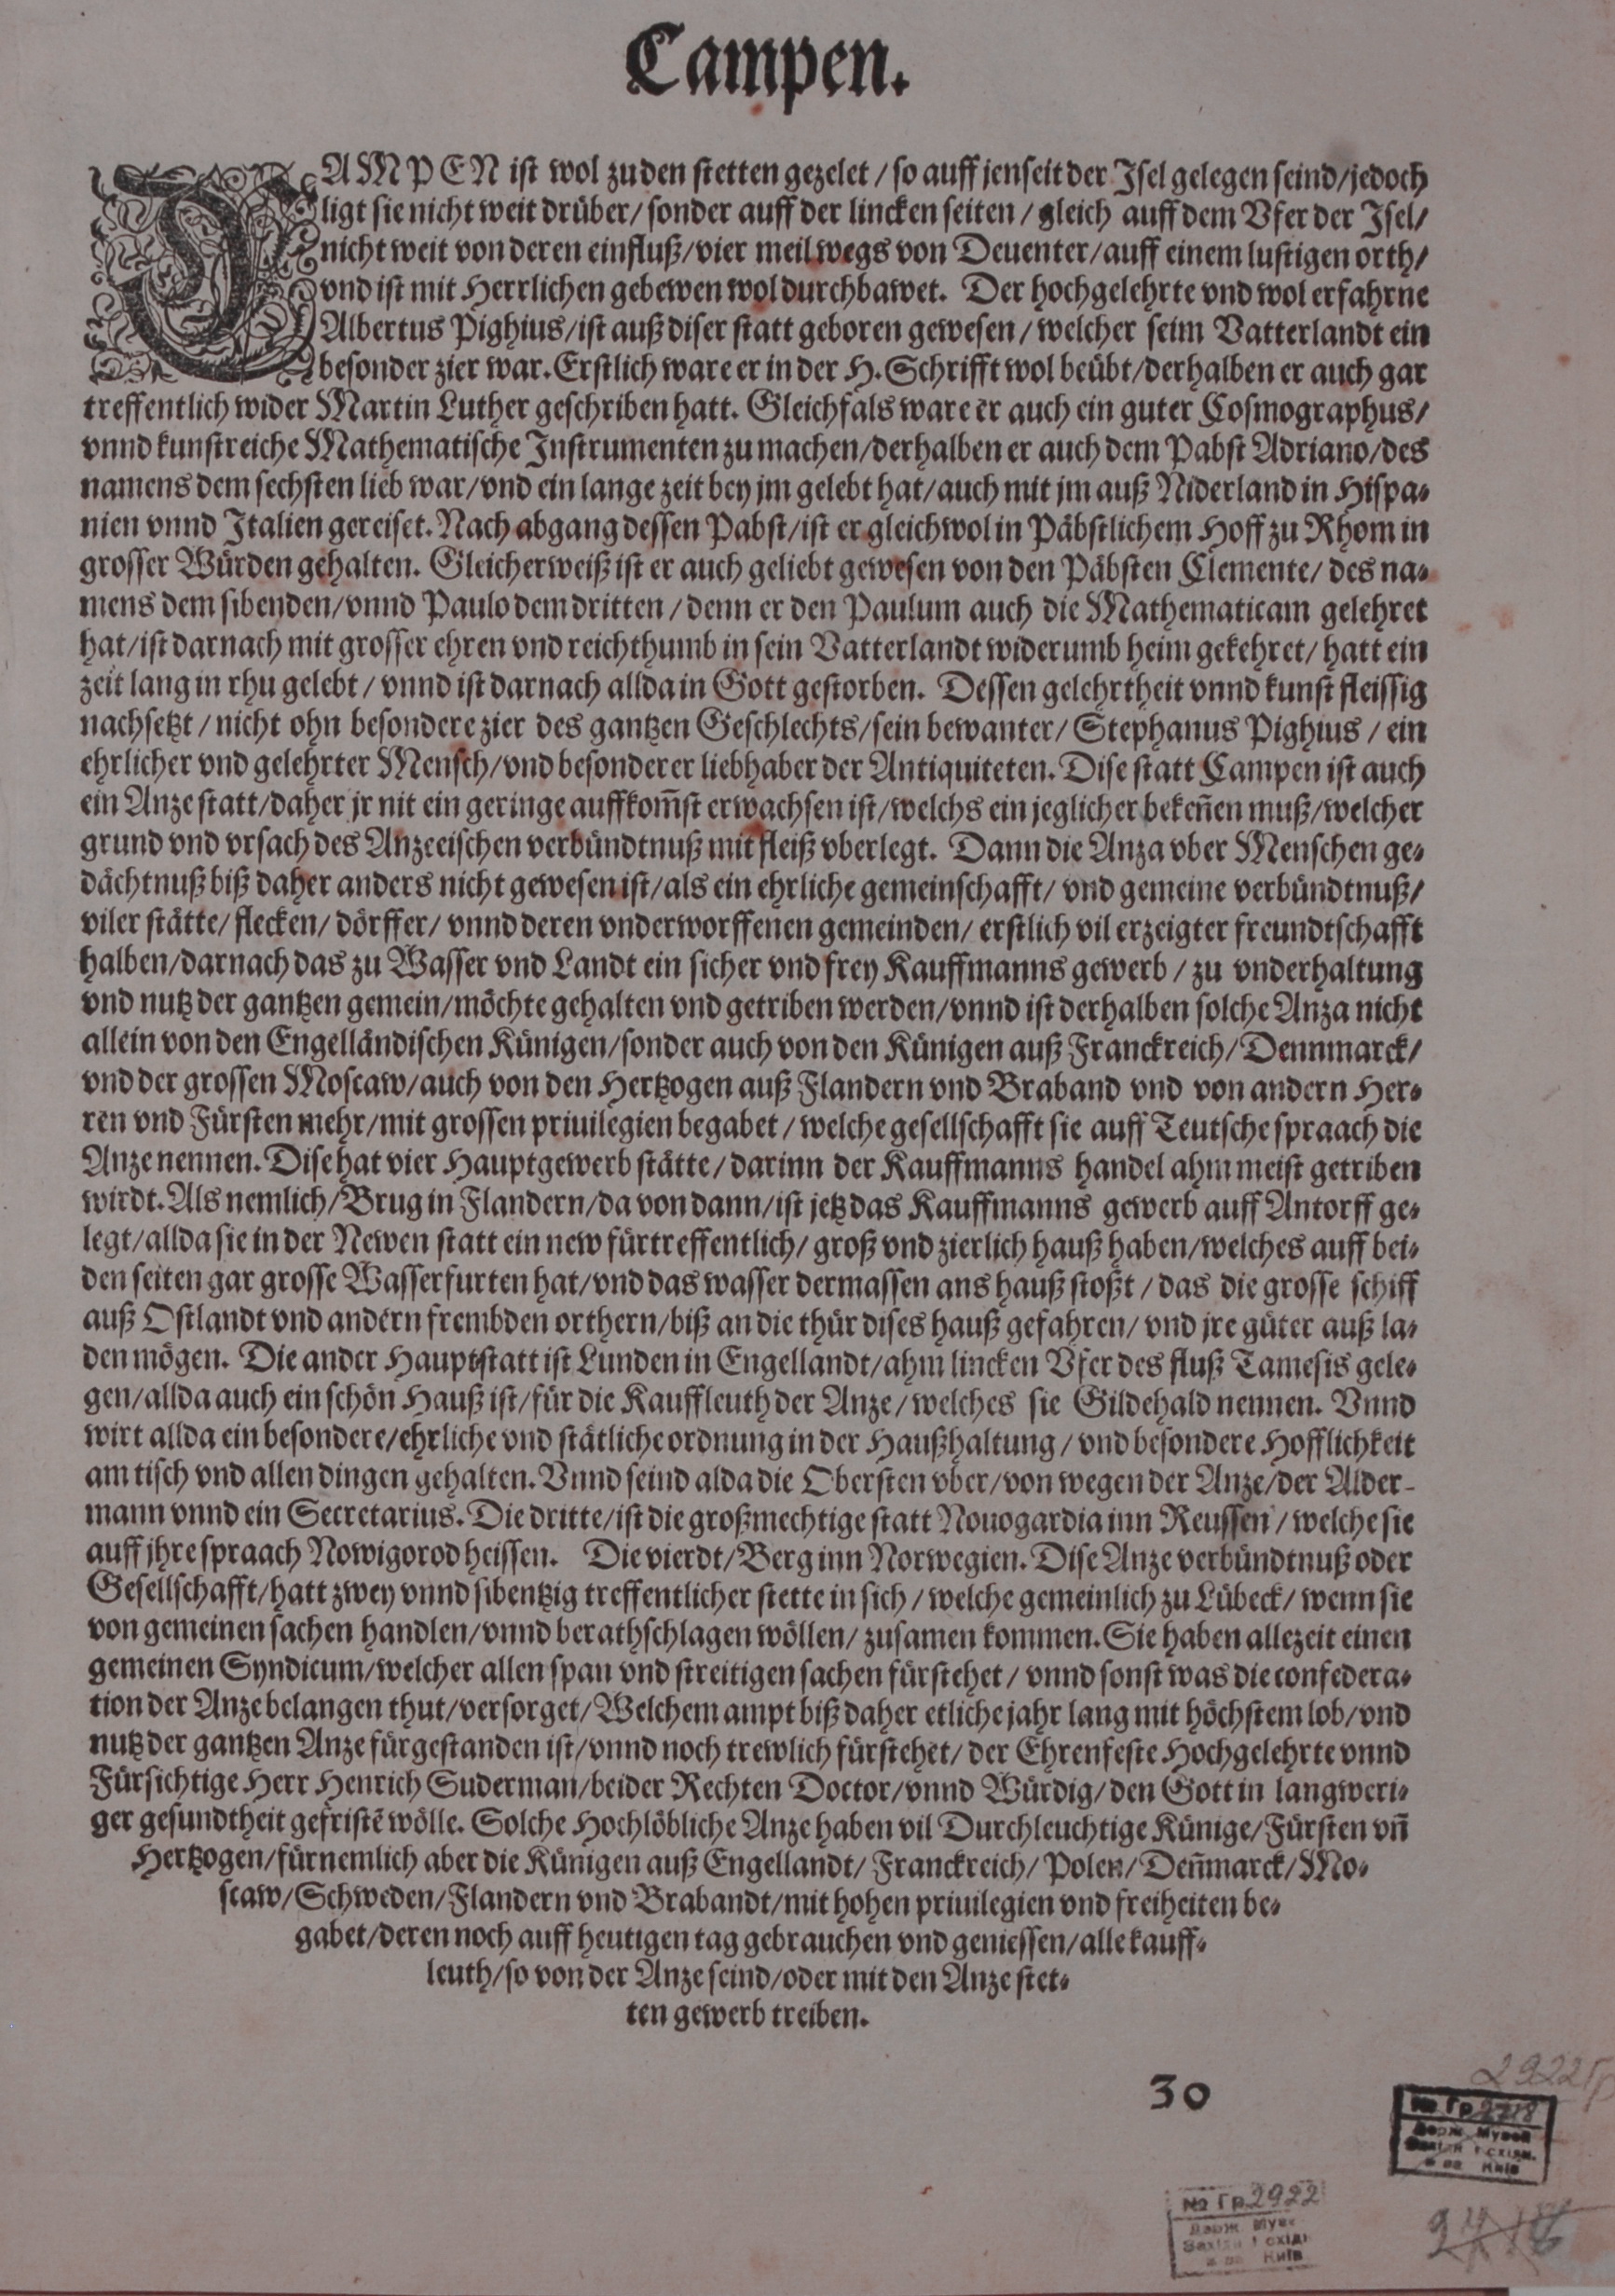 Campen.
CAMPEN ist wol zu den stetten gezelet / so auff jenseit der Isel gelegen seind/jedoch
ligt sie nicht weit drüber/ sonder auff der lincken seiten / gleich auff dem Vfer der Isel/
nicht weit von deren einfluß/vier meil wegs von Deuenter/auff einem lustigen orth/
vnd ist mit Herrlichen gebewen wol durchbawet. Der hochgelehrte vnd wol erfahrne
Albertus Pighius/ist auß diser statt geboren gewesen / welcher seim Vatterlandt ein
besonder zier war. Erstlich ware er in der H. Schrifft wol beübt/derhalben er auch gar
treffentlich wider Martin Luther geschriben hatt. Gleichfals ware er auch ein guter Cosmographus/
vnnd kunstreiche Mathematische Instrumenten zu machen/derhalben er auch dem Pabst Adriano/des
namens dem sechsten lieb war/vnd ein lange zeit bey jm gelebt hat/auch mit jm auß Niderland in Hispa-
nien vnnd Italien gereiset. Nach abgang dessen Pabst/ist er gleichwol in Päbstlichem Hoff zu Rhom in
grosser Würden gehalten. Gleicherweiß ist er auch geliebt gewesen von den Päbsten Clemente/ des na-
mens dem sibenden/vnnd Paulo dem dritten / denn er den Paulum auch die Mathematicam gelehret
hat/ist darnach mit grosser ehren vnd reichthumb in sein Vatterlandt widerumb heim gekehret/ hatt ein
zeit lang in rhu gelebt / vnnd ist darnach allda in Gott gestorben. Dessen gelehrtheit vnnd kunst fleissig
nachsetzt / nicht ohn besondere zier des gantzen Geschlechts/sein bewanter/ Stephanus Pighius / ein
ehrlicher vnd gelehrter Mensch/vnd besonderer liebhaber der Antiquiteten. Dise statt Campen ist auch
ein Anze statt/daher jr nit ein geringe auffkom̄st erwachsen ist/welchs ein jeglicher beken̄en muß/welcher
grund vnd vrsach des Anzeeischen verbündtnuß mit fleiß vberlegt. Dann die Anza vber Menschen ge-
dächtnuß biß daher anders nicht gewesen ist/als ein ehrliche gemeinschafft/ vnd gemeine verbündtnuß/
viler stätte/ flecken/ dörffer/ vnnd deren vnderworffenen gemeinden/ erstlich vil erzeigter freundtschafft
halben/darnach das zu Wasser vnd Landt ein sicher vnd frey Kauffmanns gewerb / zu vnderhaltung
vnd nutz der gantzen gemein/möchte gehalten vnd getriben werden/vnnd ist derhalben solche Anza nicht
allein von den Engelländischen Künigen/sonder auch von den Künigen auß Franckreich/Dennmarck/
vnd der grossen Moscaw/auch von den Hertzogen auß Flandern vnd Braband vnd von andern Her-
ren vnd Fürsten mehr/mit grossen priuilegien begabet / welche gesellschafft sie auff Teutsche spraach die
Anze nennen. Dise hat vier Hauptgewerb stätte/ darinn der Kauffmanns handel ahm meist getriben
wirdt. Als nemlich/Brug in Flandern/da von dann/ist jetz das Kauffmanns gewerb auff Antorff ge-
legt/allda sie in der Newen statt ein new fürtreffentlich/ groß vnd zierlich hauß haben/welches auff bei-
den seiten gar grosse Wasserfurten hat/vnd das wasser dermassen ans hauß stoßt / das die grosse schiff
auß Ostlandt vnd andern frembden orthern/biß an die thür dises hauß gefahren/ vnd jre güter auß la-
den mögen. Die ander Hauptstatt ist Lunden in Engellandt/ahm lincken Vfer des fluß Tamesis gele-
gen/allda auch ein schön Hauß ist/für die Kauffleuth der Anze/welches sie Gildehald nennen. Vnnd
wirt allda ein besondere/ehrliche vnd stätliche ordnung in der Haußhaltung/ vnd besondere Hofflichkeit
am tisch vnd allen dingen gehalten. Vnnd seind alda die Obersten vber/von wegen der Anze/der Alder-
mann vnnd ein Secretarius. Die dritte/ist die großmechtige statt Nouogardia inn Reussen / welche sie
auff jhre spraach Nowigorod heissen. Die vierdt/Berg inn Norwegien. Dise Anze verbündtnuß oder
Gesellschafft/hatt zwey vnnd sibentzig treffentlicher stette in sich / welche gemeinlich zu Lübeck/ wenn sie
von gemeinen sachen handlen/vnnd berathschlagen wöllen/ zusamen kommen. Sie haben allezeit einen
gemeinen Syndicum/welcher allen span vnd streitigen sachen fürstehet / vnnd sonst was die confedera-
tion der Anze belangen thut/versorget/Welchem ampt biß daher etliche jahr lang mit höchstem lob/vnd
nutz der gantzen Anze fürgestanden ist/vnnd noch trewlich fürstehet/ der Ehrenfeste Hochgelehrte vnnd
Fürsichtige Herr Henrich Suderman/beider Rechten Doctor/vnnd Würdig/den Gott in langweri-
ger gesundtheit gefristē wölle. Solche Hochlöbliche Anze haben vil Durchleuchtige Künige/Fürsten vn̄
Hertzogen/fürnemlich aber die Künigen auß Engellandt/ Franckreich/ Polen/ Den̄marck/Mo-
scaw/Schweden/Flandern vnd Brabandt/mit hohen priuilegien vnd freiheiten be-
gabet/deren noch auff heutigen tag gebrauchen vnd geniessen/alle kauff-
leuth/so von der Anze seind/oder mit den Anze stet-
ten gewerb treiben.
30
2922 Гр
№ Гр 2718
Держ. Музей
Західн і східн.
Київ
№ Гр. 2922
Держ. Музе
Західн і східн
Київ